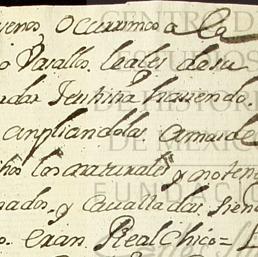 yenos, Ocurrimos a la
o Vasallos leales de su
haviendo
ampliandolas amas de
los naturales y no ten
nados, y Cavalladas, siend
o. eran Real Chico =
CENTRO DE
ESTUDIOS
DE HISTORIA
DE MEXICO
FUNDACIÓN